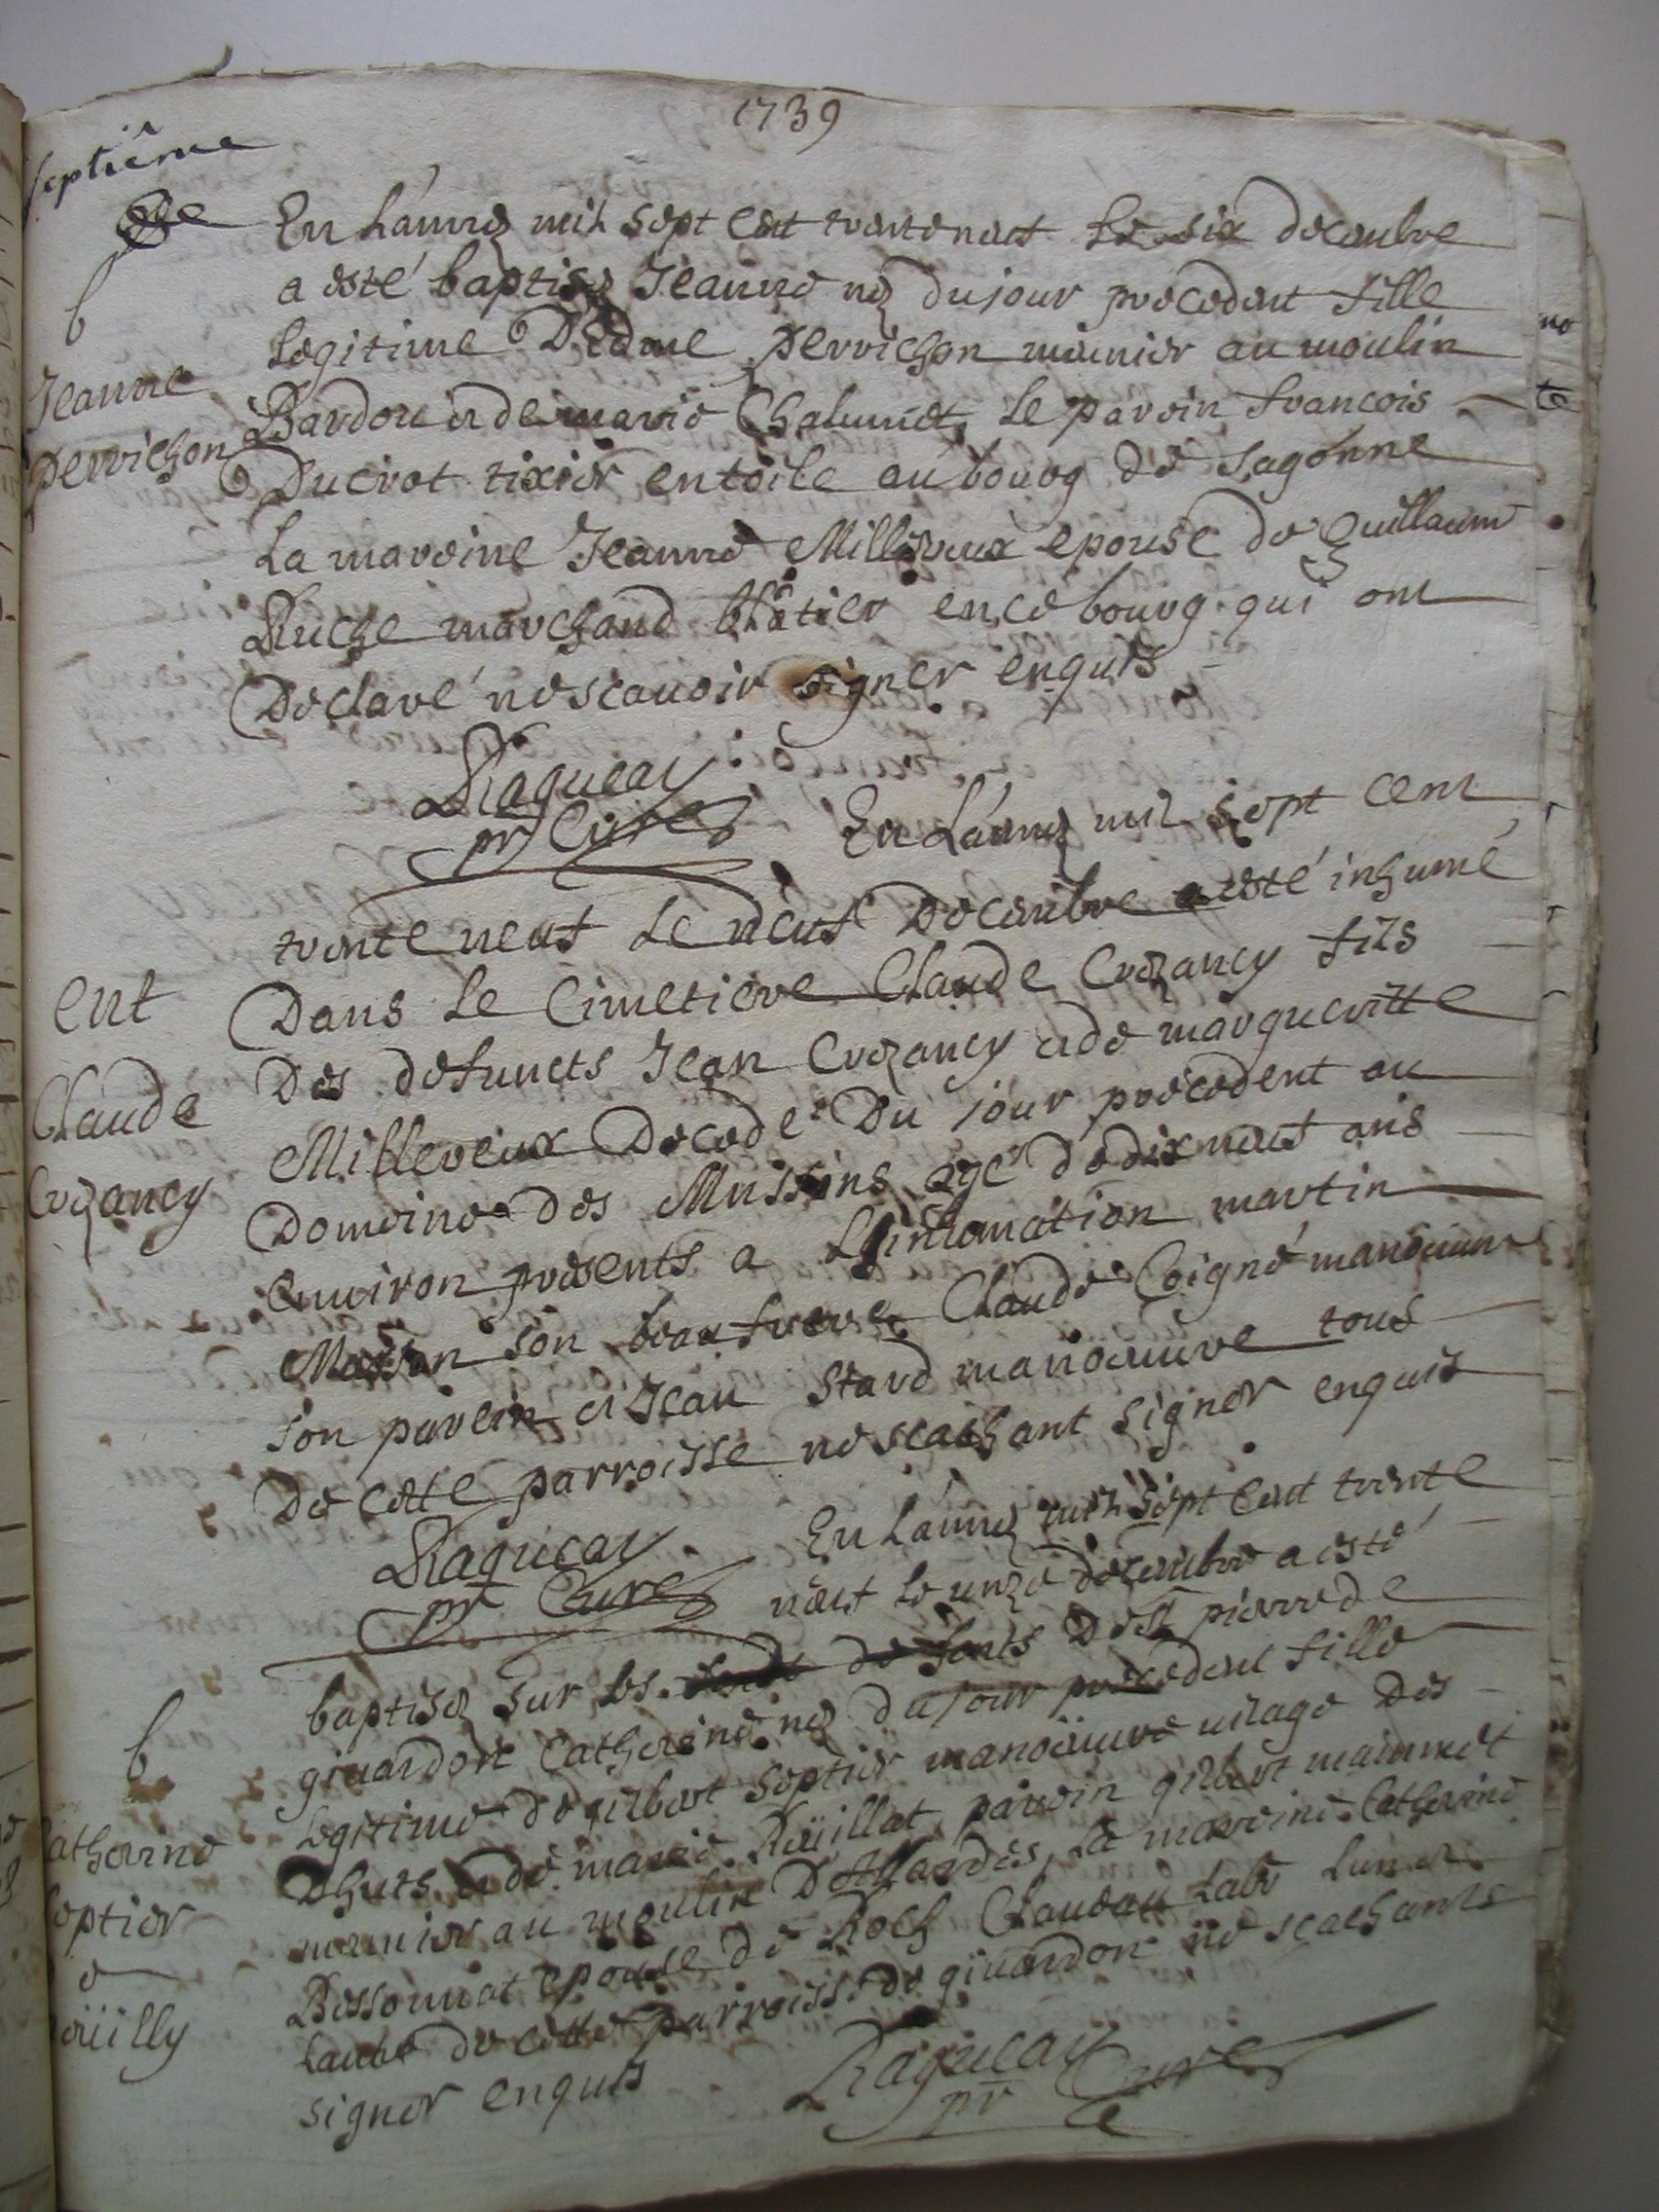 1739
septiême
En Lánneé mil sept cent trente neuf Le six decembre
a esté baptiseé Jeanne neé du jour precedent fille
b
Legitime D'Edme perrichon meunier au moulin
Jeanne
perrichon
Bardou et de marie Chalumet, Le parein francois
Ducrot tixier en toile au bourg de Sagonne
La mareine Jeanne Millereux epouse de Guillaume
Ruche marchand blâtier en ce bourg qui ont
Declaré ne scauoir signer enquis
Ragueau
pr Curé
En Lánneé mil sept cent
trente neuf Le neuf Decembre a esté inhumé
ent
Dans Le Cimetiere Claude Crozancy fils
Claude
Crozancy
Des defuncts Jean Crozancy et de margueritte
Millereux Decedé Du jour precedent au
Domeine des Mussins agé de dix neuf ans
Enuiron presents a L'inhumation martin
Masson son beau frere, Claude Coigné manoeuure
son parein et Jean Stard manoeuure tous
De cette parroisse ne scachant signer enquis
Ragueau
pr Curé
En Lánneé mil sept cent trente
neuf Le unze decembre a esté
baptiseé sur Les fonts De St pierre de
b
giuardon Catherine neé du jour precedent fille
Catherine
Septier
Legitime de gilbert Septier manoeuure uilage des
Dhuts et de marie Roüillat, parein gilbert
meunier au moulin La mareine Catherine
Bessonnat epouse de Roch Claudau
de cette parroisse de giuardon ne scachants
signer enquis
Ragueau
pr Curé